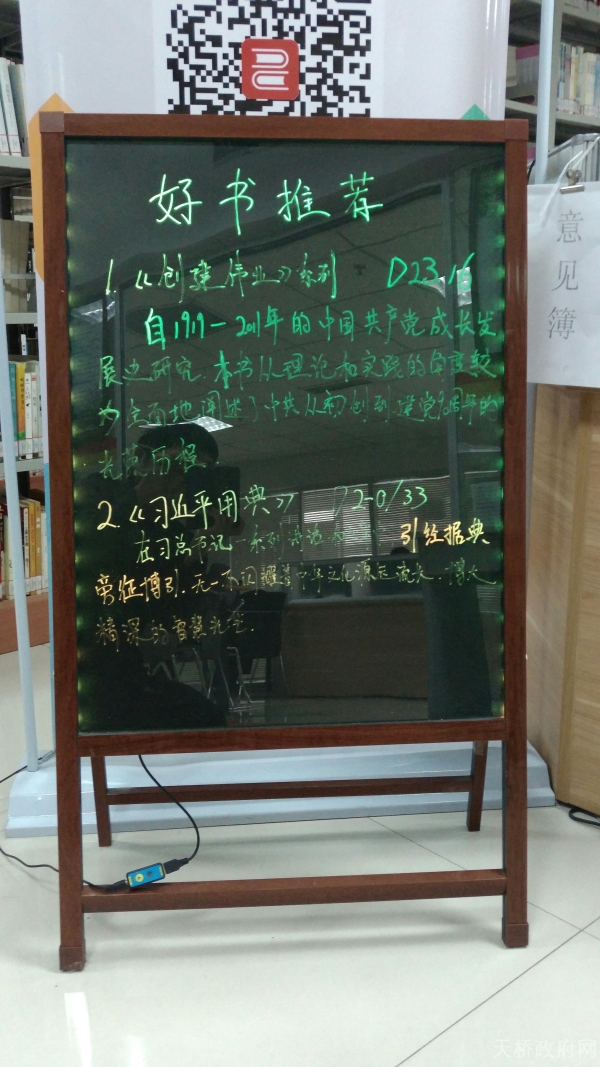 好书推荐
1.《创建伟业》系列 D23.16
自1919—2011年的中国共产党成长发
展史研究.本书从理论和实践的角度较
为全面地阐述了中共从初创到建党90周年的
光荣历程.
2.《习近平用典》 D2-0/33
在习总书记一系列 引经据典
旁征博引.无一不闪耀着中华文化源远流长.博大
精深的智慧光芒.
意见簿
天桥政府网